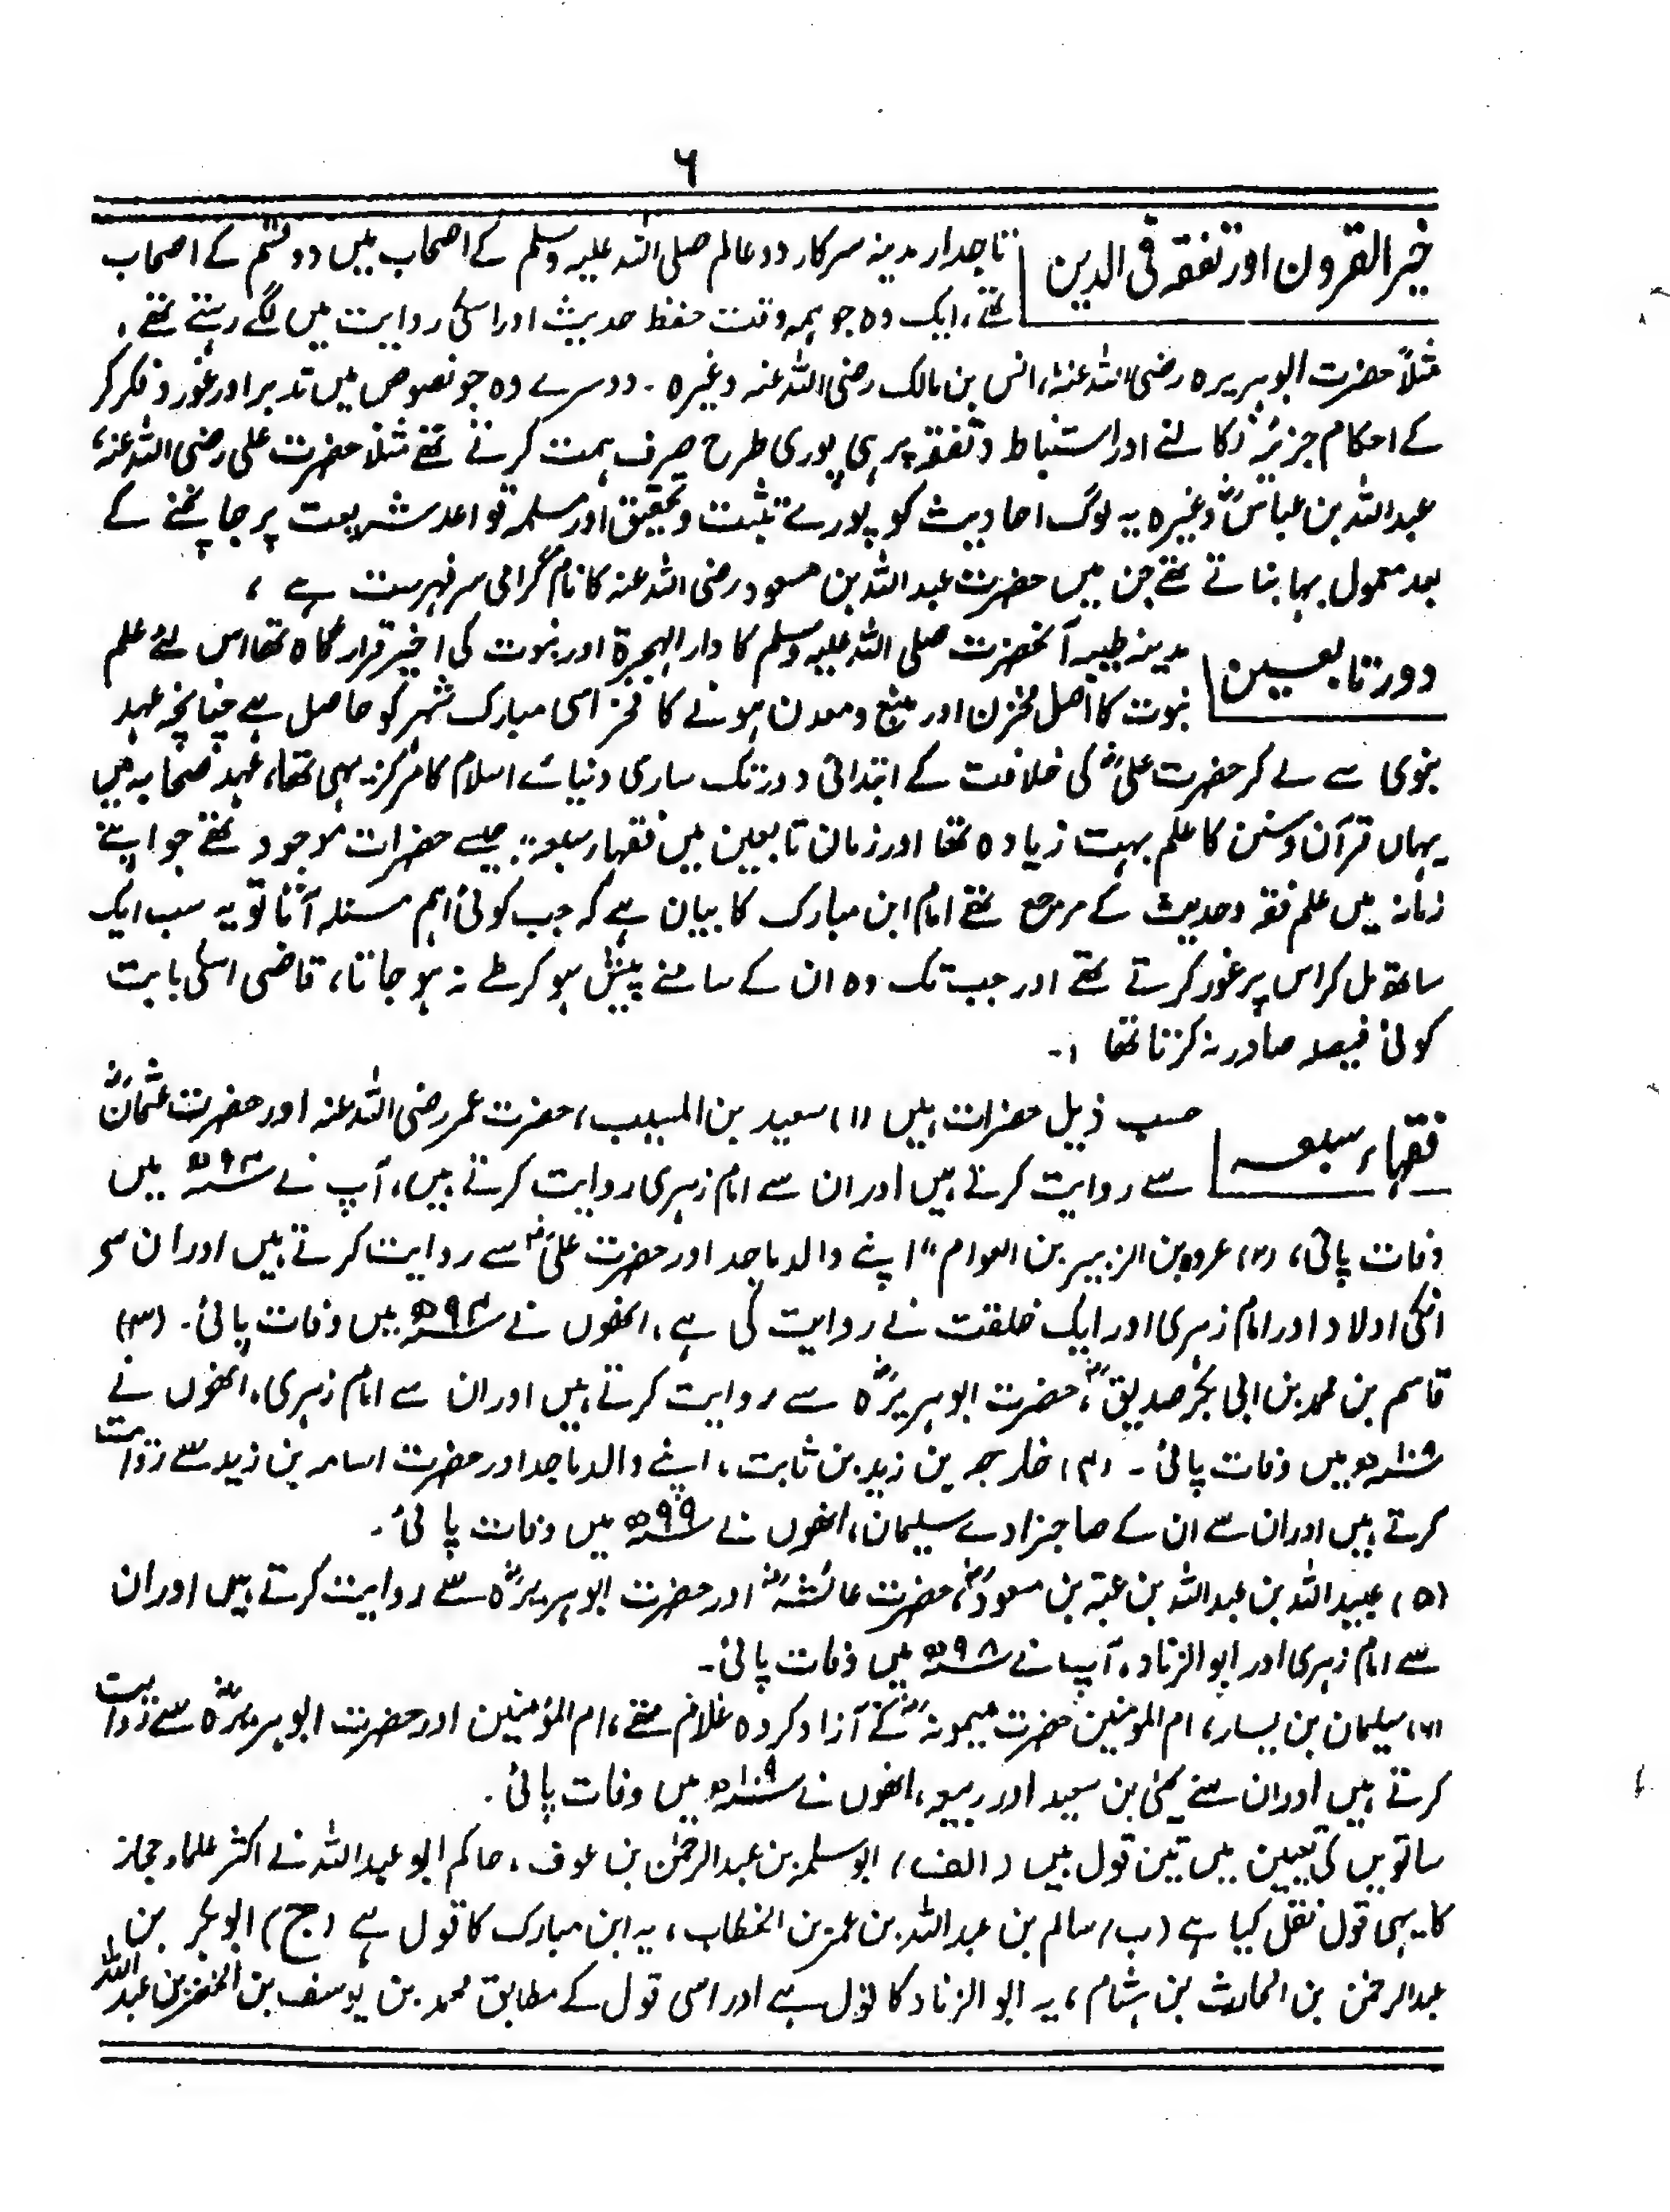 ۶
خیر القرون اور تفقہ فی الدین
تاجدار مدینہ سرکار دو عالم صلی اللہ علیہ وسلم کے اصحاب میں دو قسم کے اصحاب
تھے، ایک وہ جو ہمہ وقت حفظ حدیث اور اسکی روایت میں لگے رہتے تھے،
مثلاً حضرت ابوہریرہ رضی اللہ عنہ، انس بن مالک رضی اللہ عنہ وغیرہ۔ دوسرے وہ جو نصوص میں تدبر اور غور و فکر کر
کے احکام جزئیہ نکالنے اور استنباط و تفقہ پر ہی پوری طرح صرف ہمت کرتے تھے مثلاً حضرت علی رضی اللہ عنہ،
عبداللہ بن عباسؓ وغیرہ یہ لوگ احادیث کو پورے تثبت و تحقیق اور مسلمہ قواعد شریعت پر جانچنے کے
بعد معمول بہا بناتے تھے جن میں حضرت عبداللہ بن مسعود رضی اللہ عنہ کا نام گرامی سر فہرست ہے،
دور تابعین
مدینہ طیبہ آنحضرت صلی اللہ علیہ وسلم کا دار الہجرۃ اور نبوت کی اخیر قرار گاہ تھا اس لئے علم
نبوت کا اصل مخزن اور منبع و معدن ہونے کا فخر اسی مبارک شہر کو حاصل ہے چنانچہ عہد
نبوی سے لے کر حضرت علیؓ کی خلافت کے ابتدائی دور تک ساری دنیائے اسلام کا مرکز یہی تھا، عہد صحابہ میں
یہاں قرآن و سنن کا علم بہت زیادہ تھا اور زمان تابعین میں فقہاء سبعہ جیسے حضرات موجود تھے جو اپنے
زمانہ میں علم فقہ و حدیث کے مرجع تھے امام ابن مبارک کا بیان ہے کہ جب کوئی اہم مسئلہ آتا تو یہ سب ایک
ساتھ مل کر اس پر غور کرتے تھے اور جب تک وہ ان کے سامنے پیش ہو کر طے نہ ہو جاتا، قاضی اسکی بابت
کوئی فیصلہ صادر نہ کرتا تھا :-
فقہاء سبعہ
حسب ذیل حضرات ہیں (۱) سعید بن المسیب، حضرت عمر رضی اللہ عنہ اور حضرت عثمانؓ
سے روایت کرتے ہیں اور ان سے امام زہری روایت کرتے ہیں، آپ نے ۹۳ھ میں
وفات پائی، (۲) عروہ بن الزبیر بن العوام اپنے والد ماجد اور حضرت علیؓ سے روایت کرتے ہیں اور ان سے
انکی اولاد اور امام زہری اور ایک خلقت نے روایت کی ہے، انھوں نے ۹۴ھ میں وفات پائی۔ (۳)
قاسم بن محمد بن ابی بکر صدیقؓ، حضرت ابو ہریرہؓ سے روایت کرتے ہیں اور ان سے امام زہری، انھوں نے
میں وفات پائی۔ (۴) خارجہ بن زید بن ثابت، اپنے والد ماجد اور حضرت اسامہ بن زید سے روایت
کرتے ہیں اور ان سے ان کے صاحبزادے سلیمان، انھوں نے ۹۹ھ میں وفات پائی۔
(۵) عبیداللہ بن عبداللہ بن عتبہ بن مسعودؓ، حضرت عائشہؓ اور حضرت ابو ہریرہؓ سے روایت کرتے ہیں اور ان
سے امام زہری اور ابو الزناد، آپ نے ۹۸ھ میں وفات پائی۔
(۶) سلیمان بن یسار، ام المومنین حضرت میمونہؓ کے آزاد کردہ غلام تھے، ام المؤمنین اور حضرت ابو ہریرہؓ سے روایت
کرتے ہیں اور ان سے یحییٰ بن سعید اور ربیعہ، انھوں نے میں وفات پائی۔
ساتویں کی تعیین میں تین قول ہیں (الف) ابو سلمہ بن عبدالرحمٰن بن عوف، حاکم ابو عبداللہ نے اکثر علماء حجاز
کا یہی قول نقل کیا ہے (ب) سالم بن عبداللہ بن عمر بن الخطاب، یہ ابن مبارک کا قول ہے (ج) ابو بکر بن
عبدالرحمٰن بن الحارث بن ہشام، یہ ابو الزناد کا قول ہے اور اسی قول کے مطابق محمد بن یوسف بن الخضر بن عبداللہ